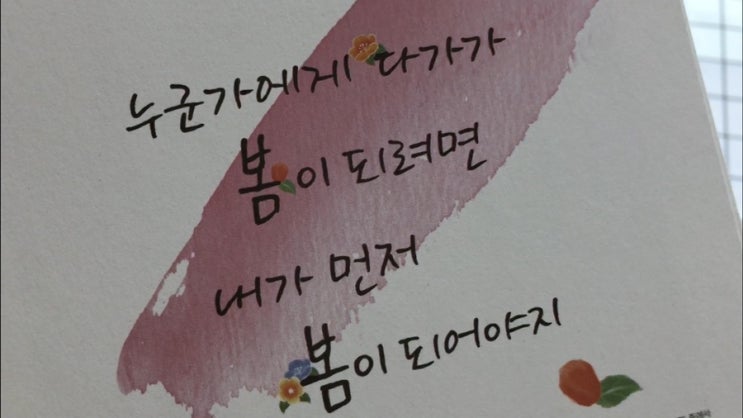 누군가에게 다가가
봄이 되려면
내가 먼저
봄이 되어야지